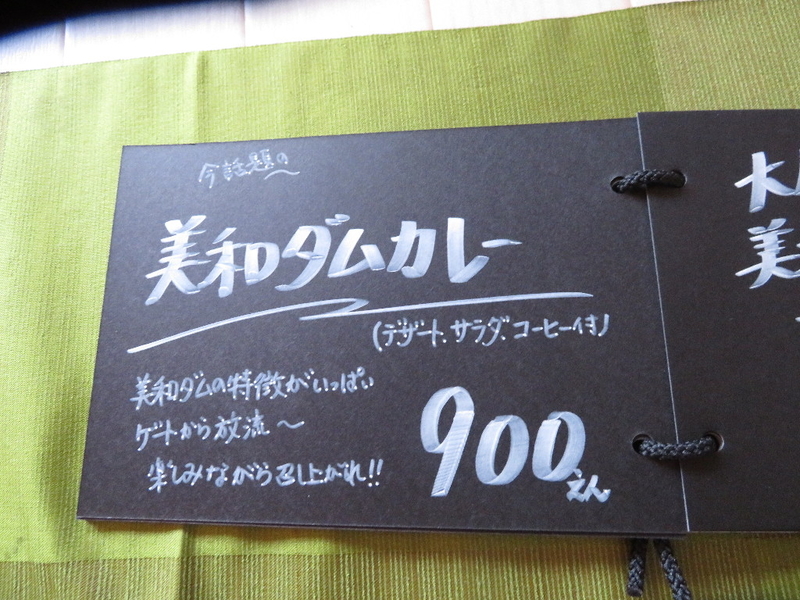 今話題の〜
美和ダムカレー
(デザート、サラダ、コーヒー付)
美和ダムの特徴がいっぱい
ゲートから放流〜
楽しみながら召し上がれ!!
900えん
美